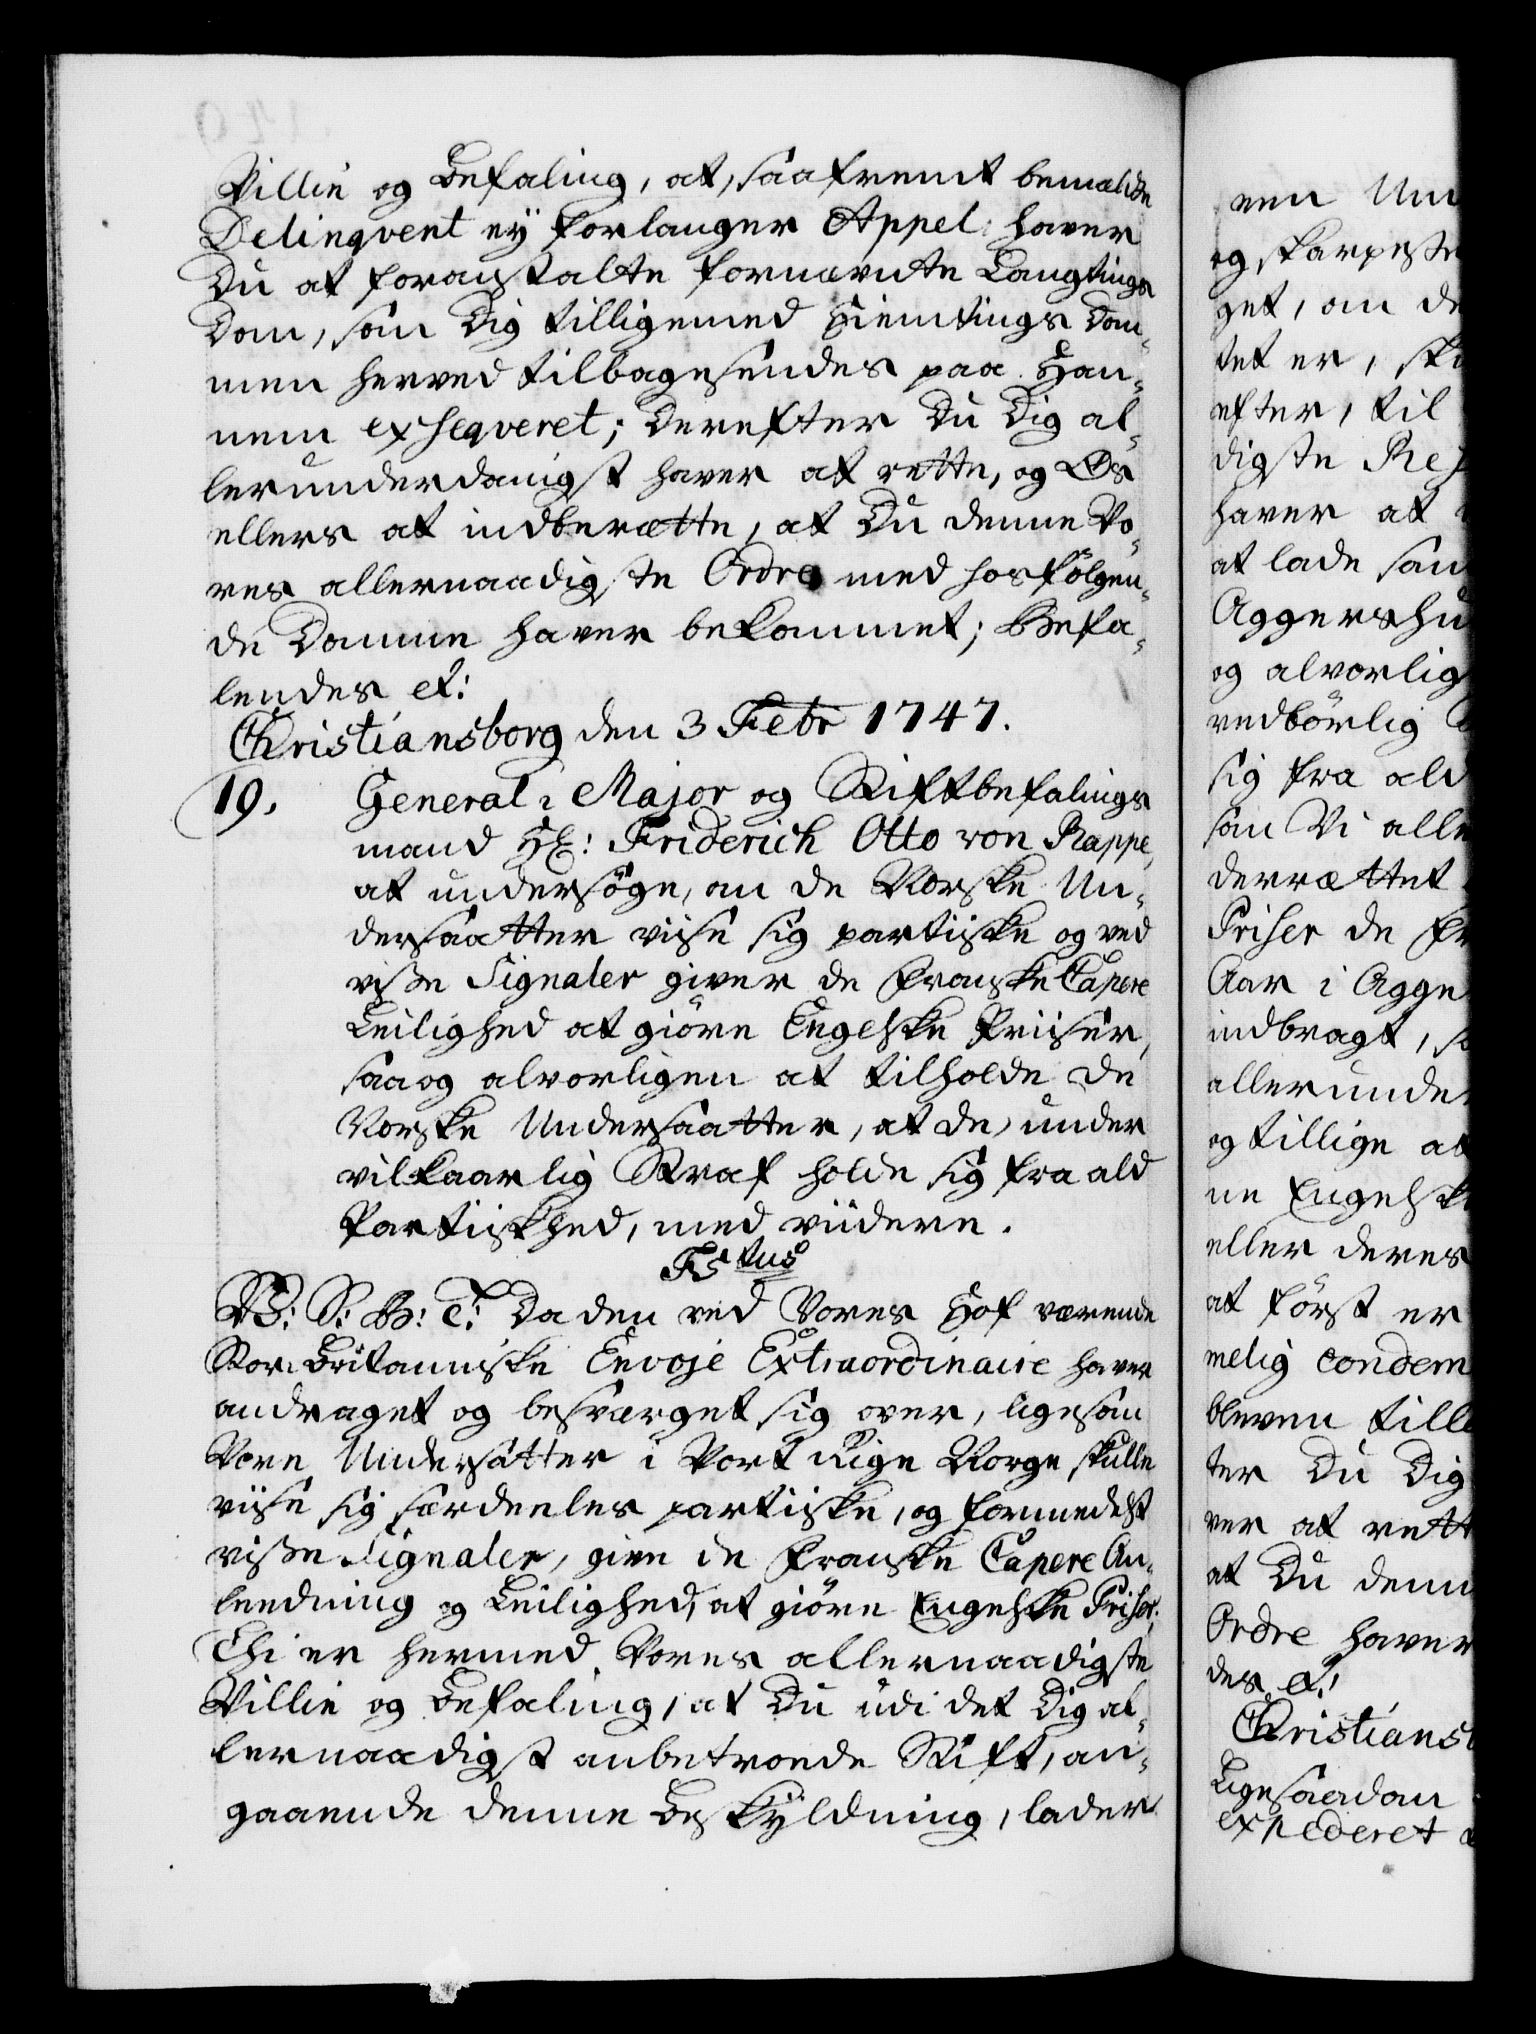 Villie og Befaling, at, saafremt bemælde
Delinqvent ey forlanger Appel: haver
Du at foranstalte fornævnte Laugtings
Dom, som Dig tilligemed Hiemtings Dom-
men herved tilbagesendes paa Han-
nem exseqveret; Derefter Du Dig al-
lerunderdanigst haver at rette, og Os
ellers at indberette, at Du denne Vo-
res allernaadigste Ordre med hosfölgen-
de Domme haver bekommet; Befa-
lendes et:
Christiansborg den 3 Febr 1747.
19. General-Major og Stiftbefalings
mand Hr: Friderich Otto von Rappe,
at undersöge, om de Norske Un-
dersaatter viise sig partiske og ved
visse Signaler giver de Franske Capere
Leilighed at giöre Engelske Priiser,
saa og alvorligen at tilholde de
Norske Undersaatter, at de, under
vilkaarlig Straf holde sig fra ald
Partiskhed, med viidere.
F5tus
V: S: B: T: Da den ved Vores Hof værende
Stor-Britanniske Envoje Extraordinaire haver
andraget og besværget sig over, ligesom
Vore Undersatter i Vort Rige Norge skulle
viise sig særdeeles partiske, og formedelst
visse Signaler, give de Franske Capere An-
leedning og Leilighed, at giöre Engelske Priser.
Thi er hermed Vores allernaadigste
Villie og Befaling, at Du udi det Dig al-
lernaadigst anbetroede Stift, an-
gaaende denne Beskyldning, lader
og skarpeste
get, om de
tet er, ska
efter, til
digste Res
haver at
at lade saa
Aggershu
og alvorlig
vedbörlig
sig fra ald
som Vi alle
derrettet
Priser de Fr
Aar i Agge
indbragt, s
allerunde
og tillige at
ne Engelsk
eller deres
at först er
melig condem
bleven till
ter Du Dig
ver at rett
at Du denn
Ordre haver
des et:
Christiansb
Ligesaadan
expederet